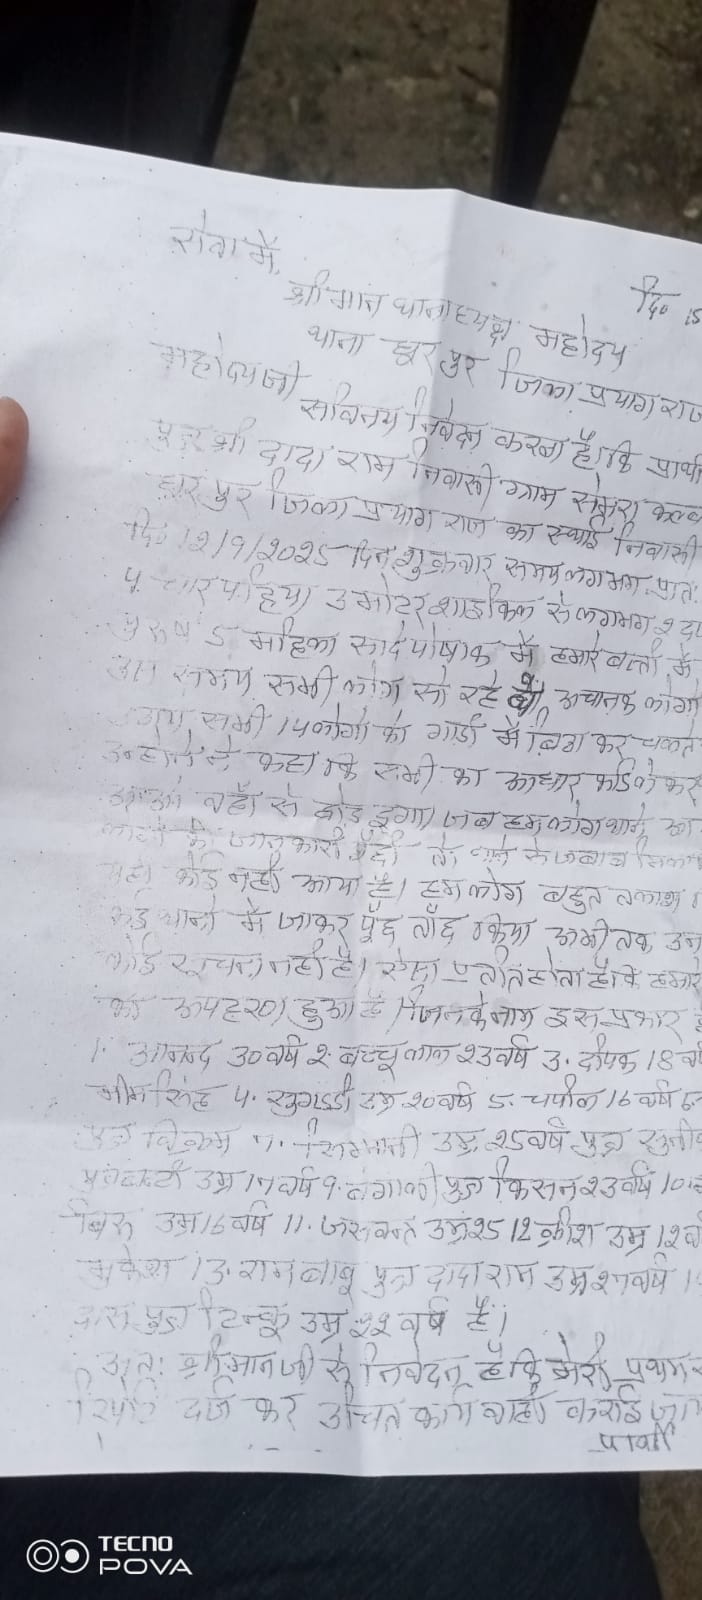 सेवा में,
दि० 15
श्रीमान थानाध्यक्ष महोदय
थाना घूरपुर जिला प्रयागराज
महोदय जी
सविनय निवेदन करना है। कि प्रार्थी
पुत्र श्री दादा राम निवासी ग्राम सेमरा कल्ब
घूरपुर जिला प्रयाग राज का स्थाई निवासी
दि० 12/9/2025 दिन शुक्रवार समय लगभग प्रातः
4 चार पहिया 3 मोटर साइकिल से लगभग 2 द
पुरुष 5 महिला सादे पोषाक में हमारे बस्ती में
उस समय सभी लोग सो रहे थे, अचानक लोगो
सभी 14 लोगो को गाडी में कर चलते
उन्होने ने कहा कि सभी का आधार कार्ड लेकर
वहाँ से छोड दूगा। जब हम लोग थाने
की जानकारी तो थाने से जबाब
यहा कोई नही आया है। हम लोग बहुत तलाश
कई थानो में जाकर पूँछ ताँछ किया अभी तक उन
कोई सूचना नही है। ऐसा प्रतीत होता है कि हमारे
का अपहरण हुआ है। जिनके नाम इस प्रकार
1. आनन्द 30 वर्ष 2. बच्चू लाल 23 वर्ष 3. दीपक 18 वर्ष
भीम सिंह 4. उम्र 20 वर्ष 5. 16 वर्ष 6.
पुत्र विक्रम 7. उम्र 25 वर्ष पुत्र
उम्र 17 वर्ष 9. पुत्र किसन 23 वर्ष 10.
उम्र 16 वर्ष 11. जसवन्त उम्र 25 12 क्रीश उम्र 12 व
मुकेश 13. राम बाबू पुत्र दादा राम उम्र 27 वर्ष 1
दास पुत्र टिन्कू उम्र 22 वर्ष है।
अतः श्रीमान जी से निवेदन है कि मेरी प्रथम
रिपोर्ट दर्ज कर उचित कार्यवाही कराई जा
प्रार्थी
TECNO
POVA